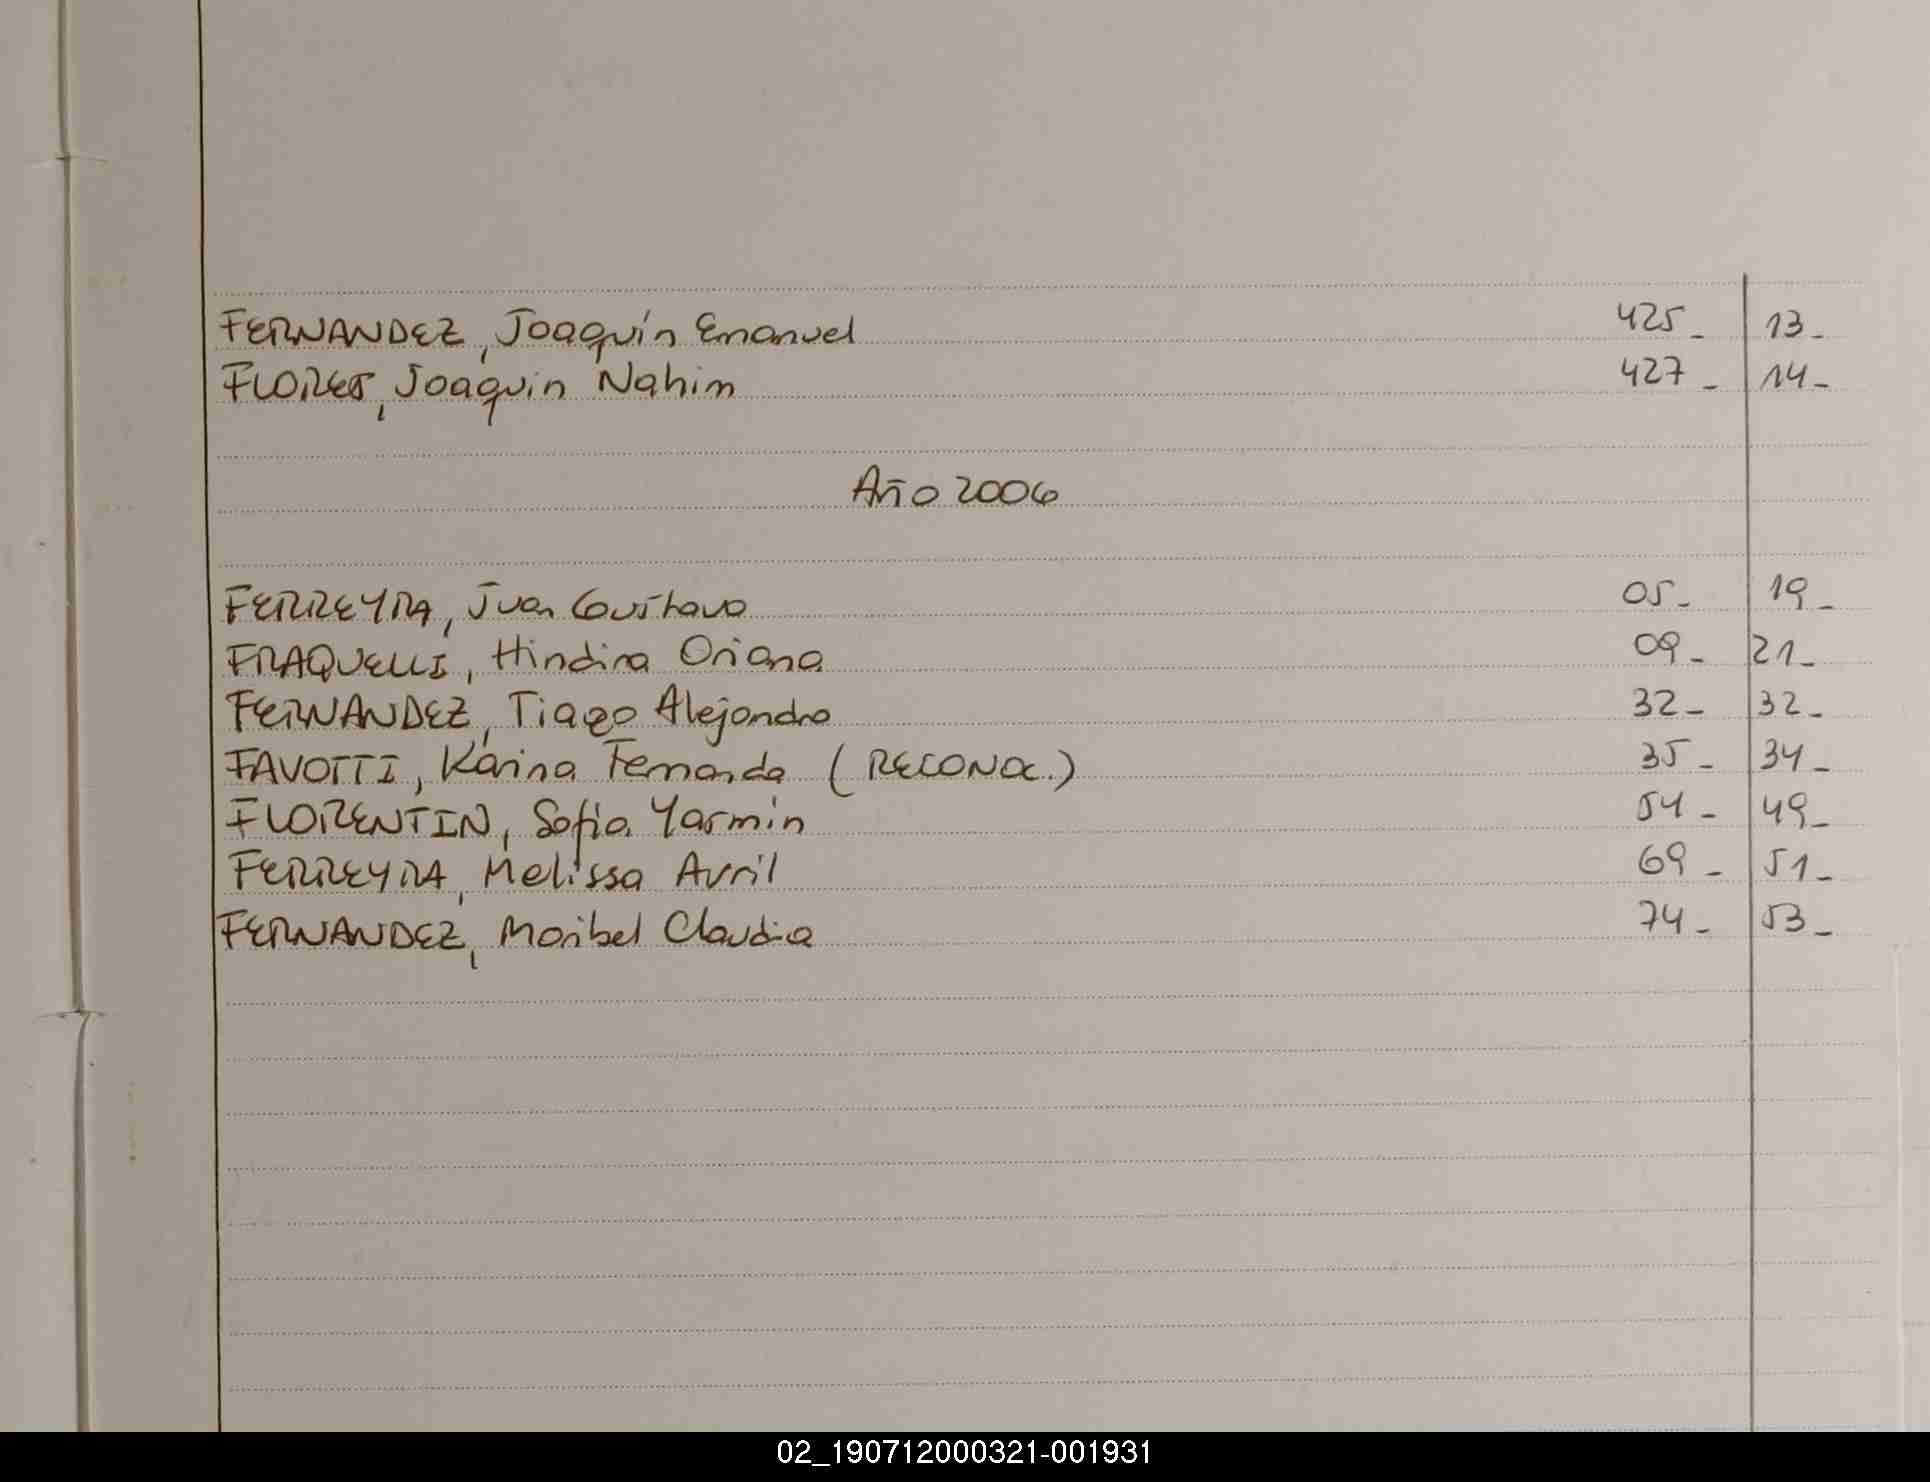 FERNANDEZ, Joaquín Emanuel 425_ 13_
FLORES, Joaquin Nahim 427_ 14_
Año 2006
FERREYRA, Juan Gustavo 05_ 19_
FRAQUELLI, Hindira Oriana 09_ 21_
FERNANDEZ, Tiago Alejandro 32_ 32_
FAVOTTI, Karina Fernanda (RECONOC.) 35_ 34_
FLORENTIN, Sofia Yasmin 54_ 49_
FERREYRA, Melissa Avril 69_ 51_
FERNANDEZ, Maribel Claudia 74_ 53_
02_190712000321-001931